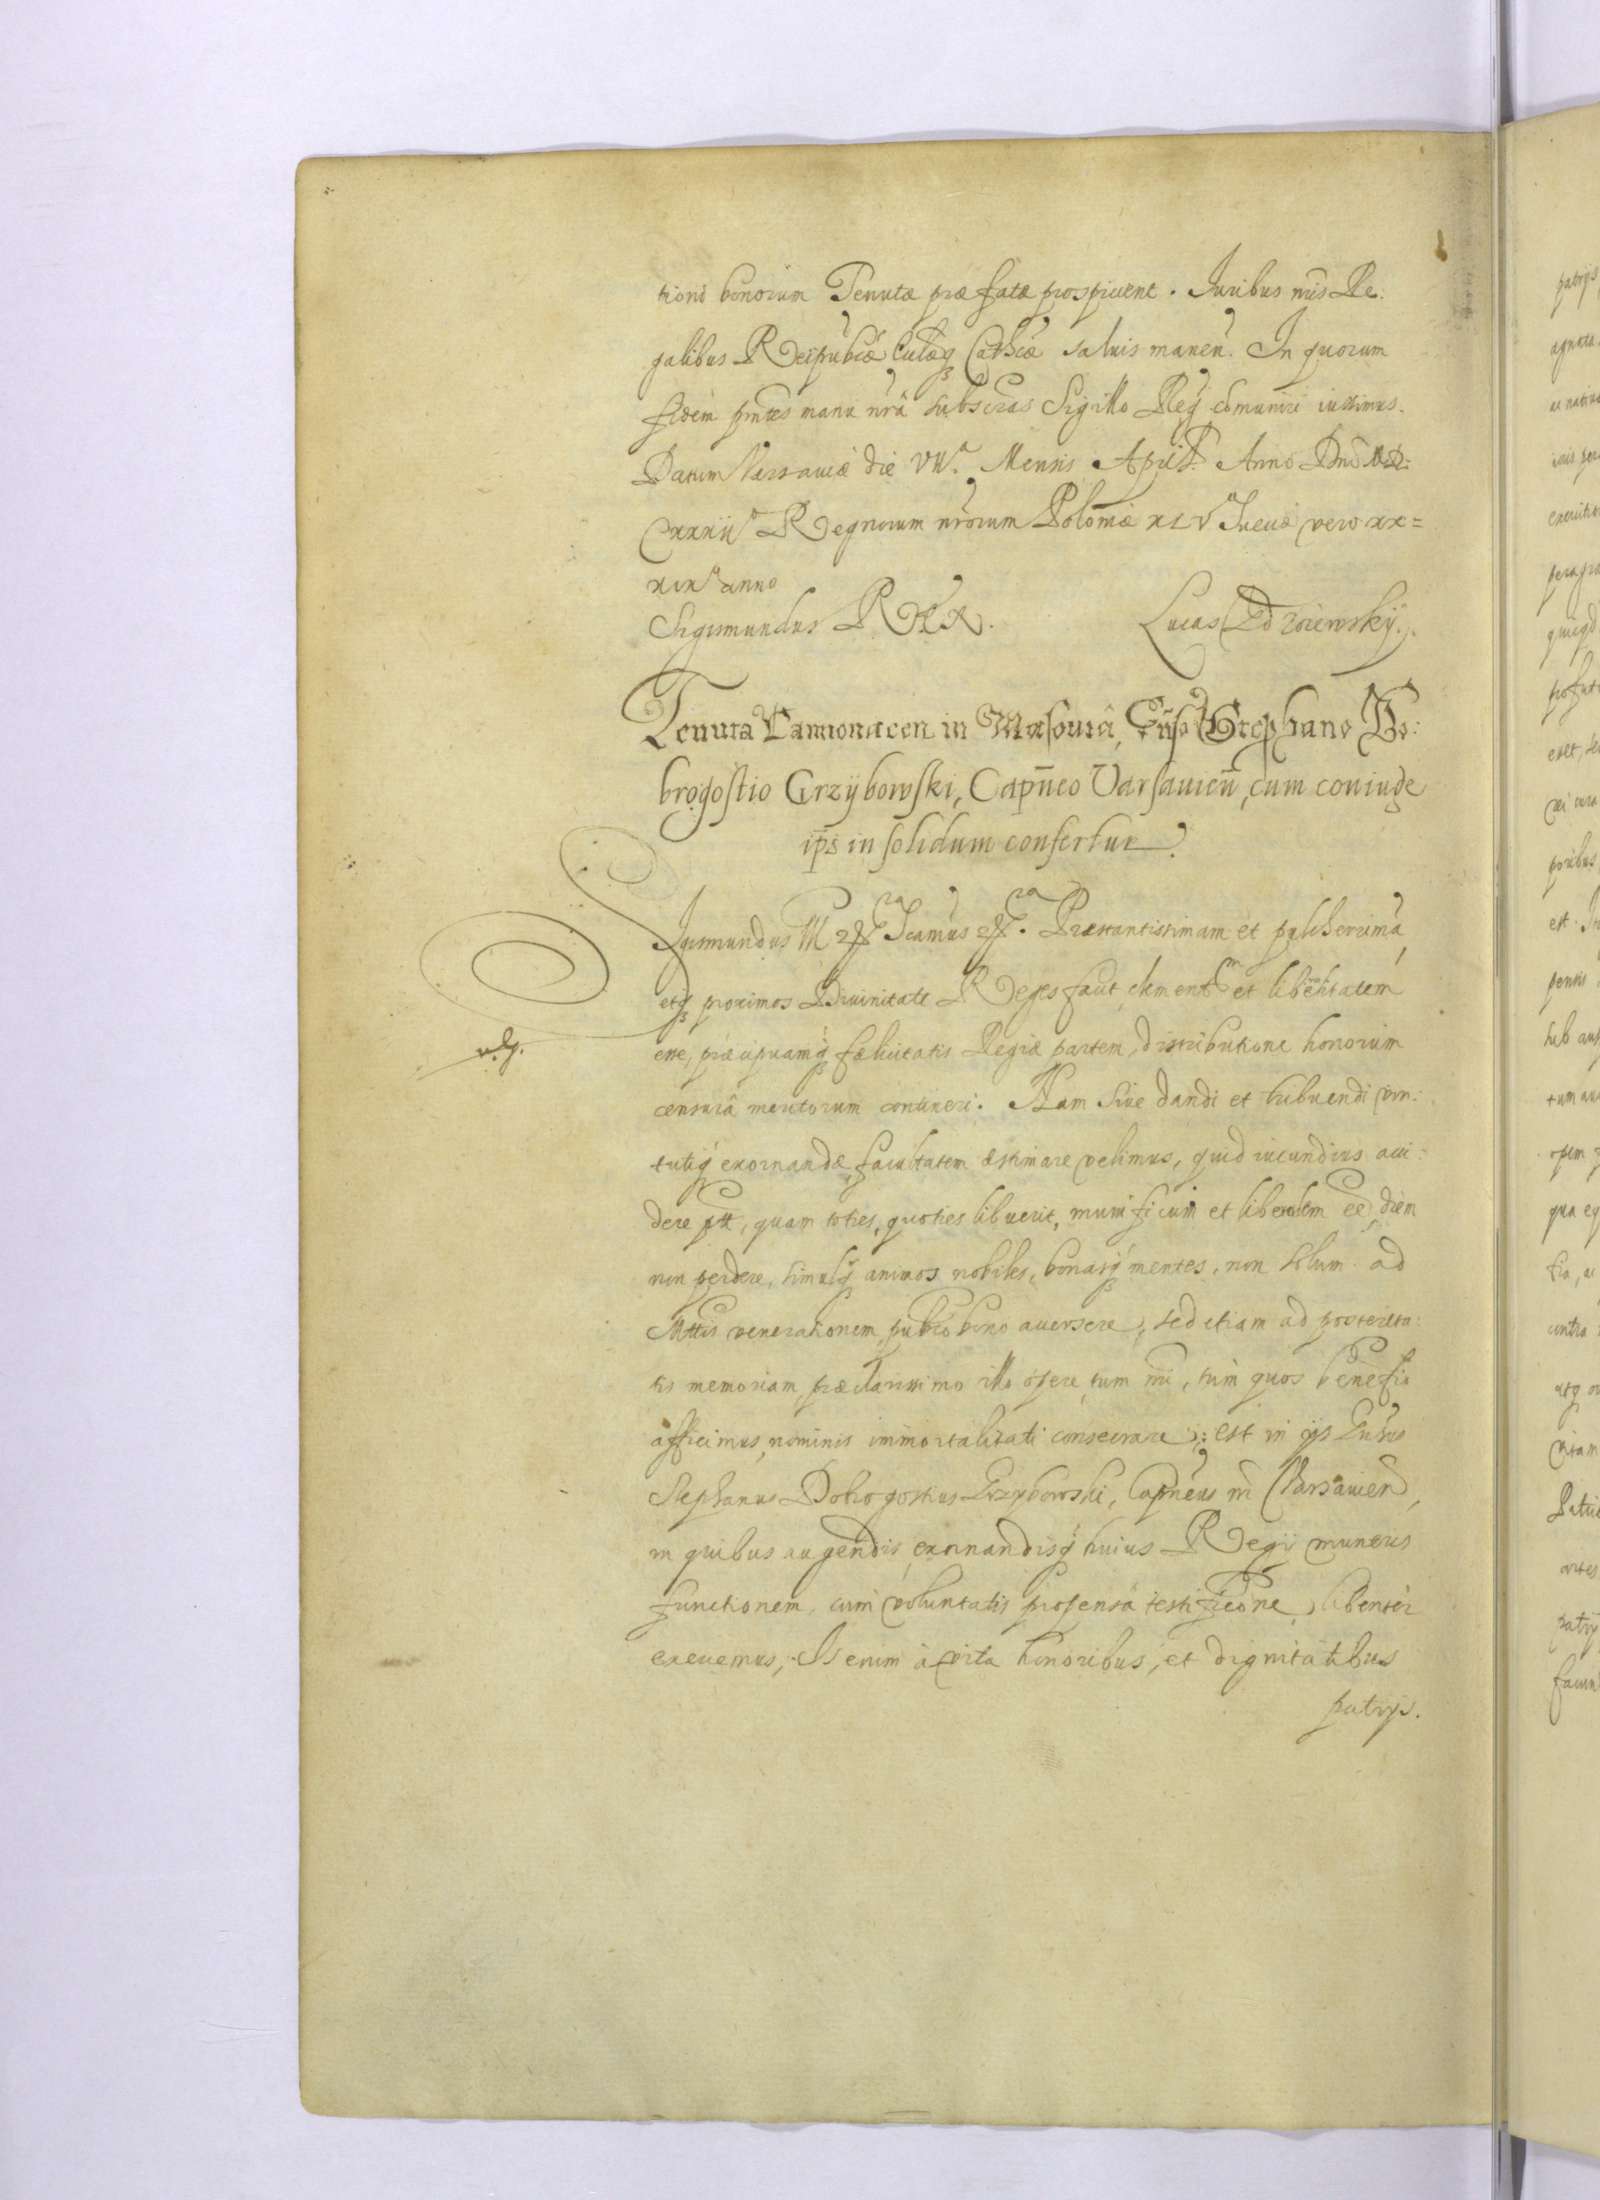 tioni bonorum Tenutæ præfatæ prospicient. Iuribus nr̃is Re-
galibus Reipubcæ Ecclæq Cathcæ saluis manen. In quorum
fidem pñtes manu nrâ subscras Sigillo Regni cõmuniri iussimus.
Datum Varsauiæ die VII.ª Mensis April. Anno Dñi M.D.
CXXXII.º Regnorum nrorum Poloniæ XLVº Sueciæ vero XX=
XIXº anno
Sigismundus REX.
Lucas
Tenuta Camionacen in Masouiâ, Gñso Stephano Do:
brogostio Grzÿbowski, Capñeo Varsauieñ, cum coniuge
ips̄ in solidum confertur.
Sigismundus III etc. Præstantissimam et pulcherrimã,
etq proximos Diuinitate Reges faciat, clement et liberalitatem
esse, præcipuamq fælicitatis Regiæ partem, distributione honorum
censurâ meritorum contineri. Nam siue dandi et tribuendi vir:
tutisq exornandæ, facultatem æstimare velimus, quid iucundius acci:
dere pt, quam toties, quoties libuerit, munificum et liberalem ee, diem
non perdere, simulq animos nobiles, bonasq mentes, non solum ad
Mttis venerationem publco bono, sed etiam ad posterita:
tis memoriam, præclarissimo illo opere, tum nri, tum quos beneficio
afficimus, nominis immortalitati consecrare; est in ijs Gñsus
Stephanus Dobrogostius Grzybowski, Capñeus nr̃ Varsauien,
in quibus augendis exornandisq huius Regij muneris
functionem, cum voluntatis propensâ testificõne, libenter
exeuemus, Is enim à vita honoribus, et dignitatibus
patrijs.